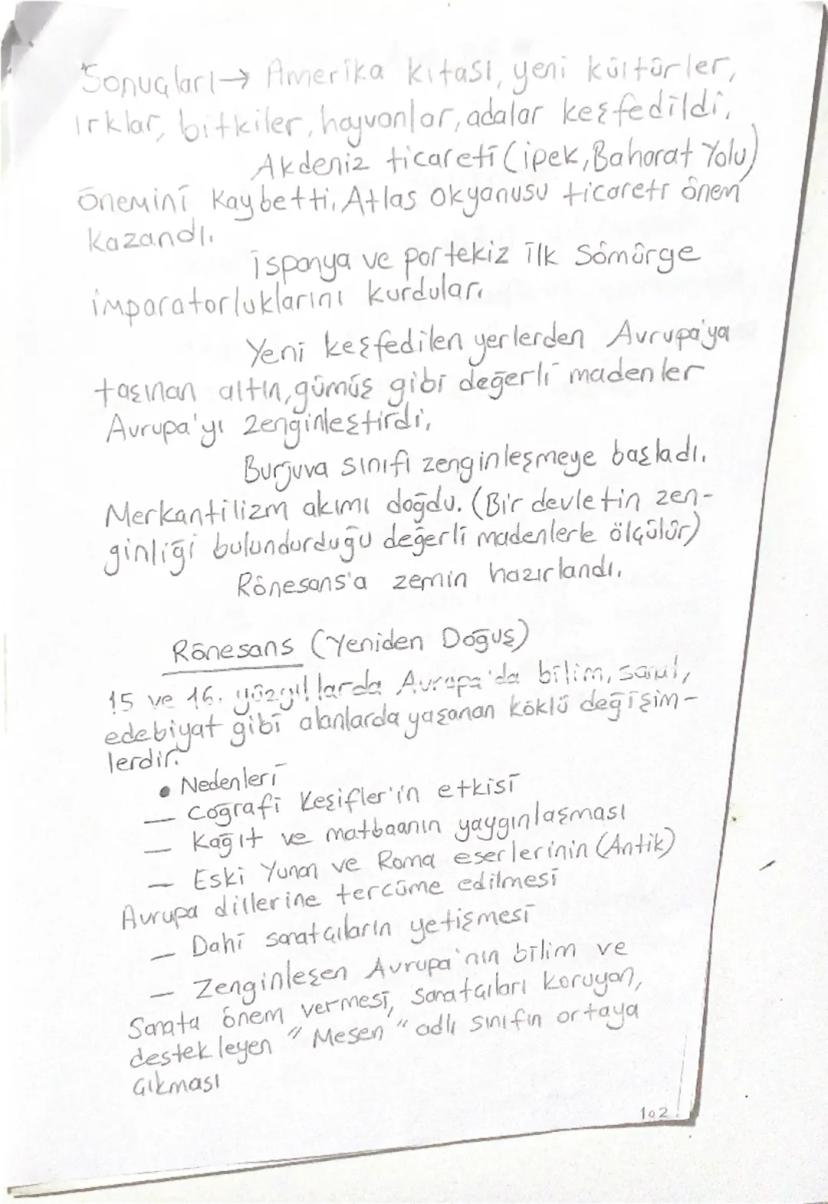 Sonuçları → Amerika kıtası, yeni kültürler,
ırklar, bitkiler, hayvanlar, adalar keşfedildi.
Akdeniz ticareti (ipek, Baharat Yolu)
önemini kaybetti. Atlas okyanusu ticareti önem
kazandı.
İspanya ve portekiz ilk sömürge
imparatorluklarını kurdular.
Yeni keşfedilen yerlerden Avrupa'ya
taşınan altın, gümüş gibi değerli madenler
Avrupa'yı zenginleştirdi.
Burjuva sınıfı zenginleşmeye başladı.
Merkantilizm akımı doğdu. (Bir devletin zen-
ginliği bulundurduğu değerli madenlerle ölçülür)
Rönesans'a zemin hazırlandı.
Rönesans (Yeniden Doğuş)
15 ve 16. yüzyıllarda Avrupa'da bilim, sanat,
edebiyat gibi alanlarda yaşanan köklü değişim-
lerdir.
• Nedenleri
— Coğrafi Keşifler'in etkisi
— Kağıt ve matbaanın yaygınlaşması
— Eski Yunan ve Roma eserlerinin (Antik)
Avrupa dillerine tercüme edilmesi
— Dahi sanatçıların yetişmesi
— Zenginleşen Avrupa'nın bilim ve
Sanata önem vermesi, sanatçıları koruyan,
destekleyen "Mesen" adlı sınıfın ortaya
çıkması
102